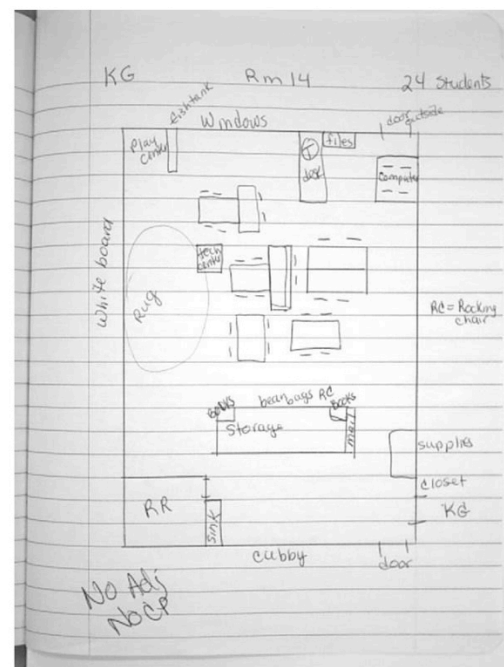 KG Rm 14 24 Students
fishtank
Windows
door outside
Play
Center
T
desk
files
Computer
White board
Rug
tech
center
RC = Rocking
chair
Books
beanbags RC
Books
Storage
mail
supplies
closet
RR
sink
KG
cubby
door
No Adj
No CP